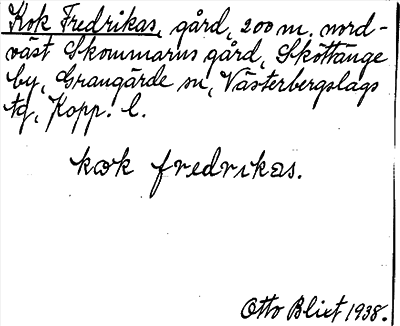 Kok Fredrikas, gård, 200 m. nord-
väst Skommarns gård, Sköttänge
by, Grangärde sn, Västerbergslags
tg, Kopp. l.
kok fredrikas.
Otto Blixt 1938.